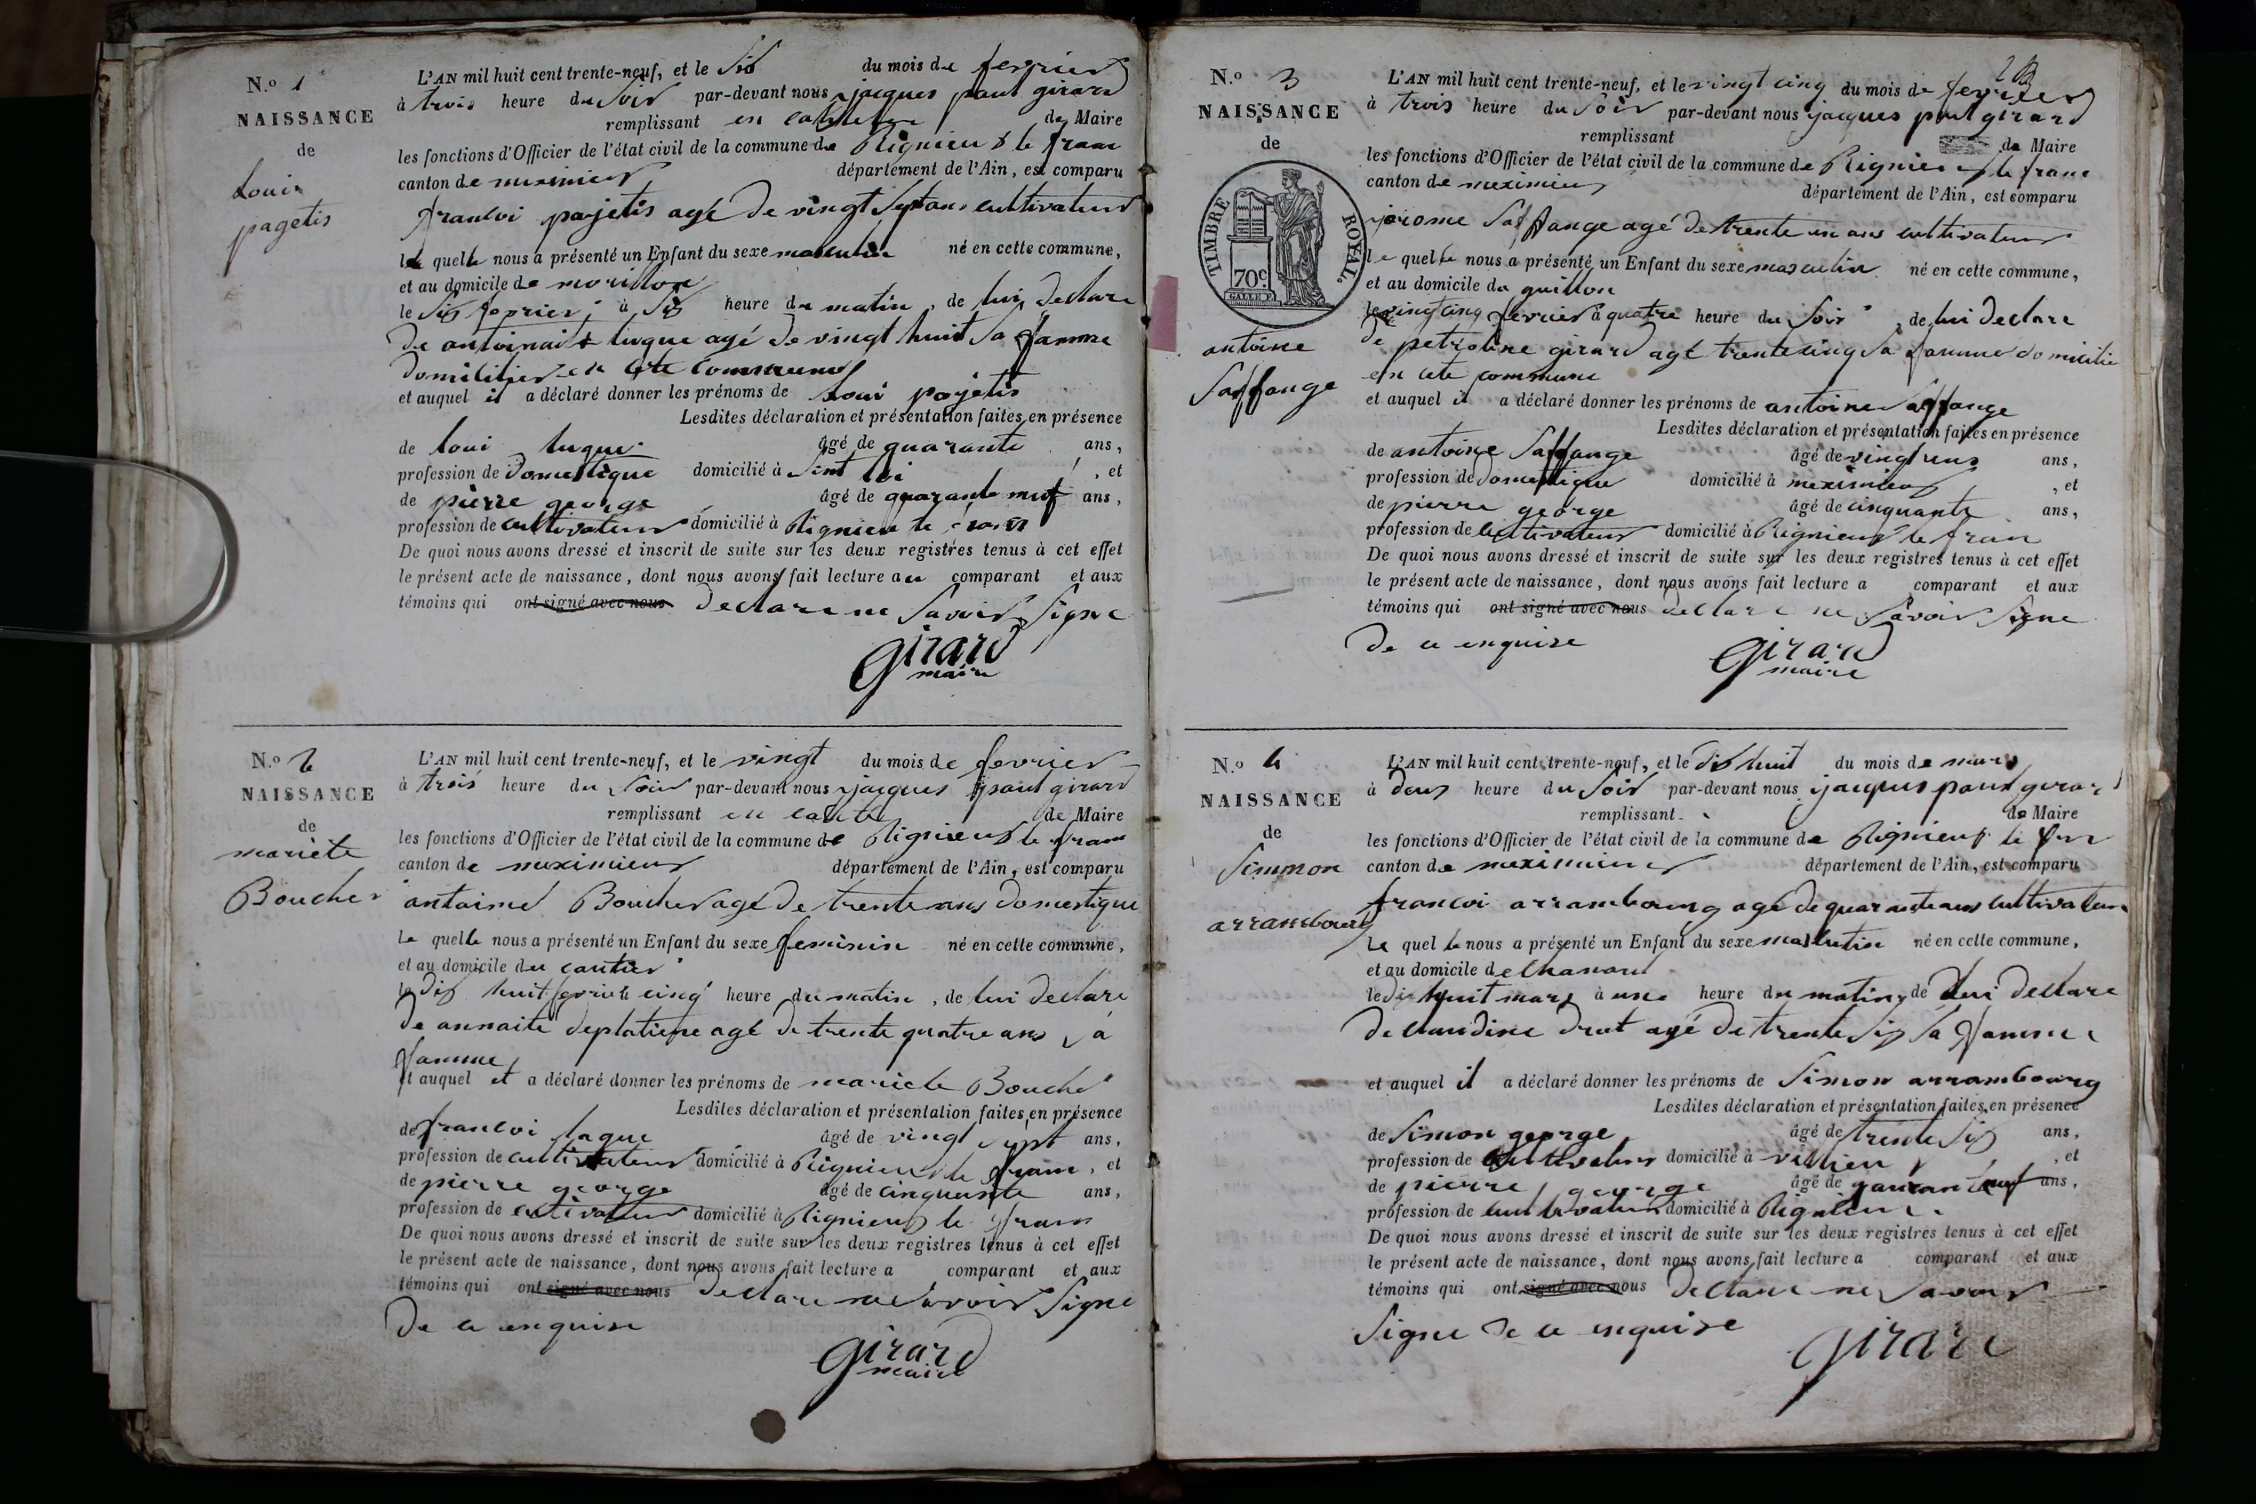 N.o 1
NAISSANCE
de
Loui
pagetis
L'AN mil huit cent trente-neuf, et le Six du mois de fevrier
à trois heure du Soir par-devant nous jacques paul girard
remplissant en de Maire
les fonctions d'Officier de l'état civil de la commune de Rignieu le fran
canton de meximieu département de l'Ain, est comparu
francoi pajetis agé de vingt Sept ans cultivateur
le quelle nous a présenté un Enfant du sexe masculin né en cette commune,
et au domicile de morillon
le Six fevrier à Six heure du matin, de lui declare
De antoinait luque agé de vingt huit Sa famme
Domicilier en cete commune
et auquel il a déclaré donner les prénoms de Loui pajetis
Lesdites déclaration et présentation faites en présence
de loui luque âgé de quarante ans,
profession de Domestique domicilié à Sint , et
de pierre george âgé de quarante neuf ans,
profession de cultivateur domicilié à Rignieu le fran
De quoi nous avons dressé et inscrit de suite sur les deux registres tenus à cet effet
le présent acte de naissance, dont nous avons fait lecture au comparant et aux
témoins qui ont signé avec nous Declare ne Savoir Signe
Girard
maire
N.o 2
NAISSANCE
de
mariete
Boucher
L'AN mil huit cent trente-neuf, et le vingt du mois de fevrier
à trois heure du Soir par-devant nous jacques paul girard
remplissant en de Maire
les fonctions d'Officier de l'état civil de la commune de Rignieux le fran
canton de meximieux département de l'Ain, est comparu
antoine Boucher agé de trente ans domestique
Le quelle nous a présenté un Enfant du sexe feminin né en cette commune,
et au domicile du cantier
le Dix huit fevrier à cinq heure du matin, de lui declare
De annaite deplatiere agé de trente quatre ans Sa
famme
et auquel il a déclaré donner les prénoms de mariete Boucher
Lesdites déclaration et présentation faites en présence
de francoi laque âgé de vingt Sept ans,
profession de cultivateur domicilié à Rignieux le fran, et
de pierre george âgé de cinquante ans,
profession de cultivateur domicilié à Rignieux le fran
De quoi nous avons dressé et inscrit de suite sur les deux registres tenus à cet effet
le présent acte de naissance, dont nous avons fait lecture a comparant et aux
témoins qui ont signé avec nous Declare ne Savoir Signe
De ce enquise
Girard
maire
N.o 3
NAISSANCE
de
TIMBRE ROYAL.
70c.
antoine
Saffange
L'AN mil huit cent trente-neuf, et le vingt cinq du mois de fevrier
à trois heure du Soir par-devant nous jacques paul girard
remplissant de Maire
les fonctions d'Officier de l'état civil de la commune de Rignieux le franc
canton de meximieu département de l'Ain, est comparu
jérome Saffange agé de trente un ans cultivateur
le quelle nous a présenté un Enfant du sexe masculin né en cette commune,
et au domicile du guillon
le vingt cinq fevrier à quatre heure du Soir, de lui declare
De petroline girard agé trente cinq Sa famme domicilie
en cete commune
et auquel il a déclaré donner les prénoms de antoine Saffange
Lesdites déclaration et présentation faites en présence
de antoine Saffange âgé de ans,
profession de domestique domicilié à meximieux, et
de pierre george âgé de cinquante ans,
profession de cultivateur domicilié à Rignieux le fran
De quoi nous avons dressé et inscrit de suite sur les deux registres tenus à cet effet
le présent acte de naissance, dont nous avons fait lecture a comparant et aux
témoins qui ont signé avec nous Declare ne Savoir Signe
De ce enquise
Girard
maire
N.o 4
NAISSANCE
de
Simmon
arrambourg
L'AN mil huit cent trente-neuf, et le Dix huit du mois de mars
à Deux heure du Soir par-devant nous jacques paul girard
remplissant de Maire
les fonctions d'Officier de l'état civil de la commune de Rignieux le
canton de meximieux département de l'Ain, est comparu
francoi arrambourg agé de quarante ans cultivateur
Le quel le nous a présenté un Enfant du sexe masculin né en cette commune,
et au domicile de
le Dix huit mars à une heure du matin, de lui declare
De claudine drut agé de trente Six Sa famme
et auquel il a déclaré donner les prénoms de Simon arrambourg
Lesdites déclaration et présentation faites en présence
de Simon george âgé de trente Six ans,
profession de cultivateur domicilié à villieu, et
de pierre george âgé de quarante neuf ans,
profession de cultivateur domicilié à Rignieux
De quoi nous avons dressé et inscrit de suite sur les deux registres tenus à cet effet
le présent acte de naissance, dont nous avons fait lecture a comparant et aux
témoins qui ont signé avec nous Declare ne Savoir
Signe De ce enquise
Girard